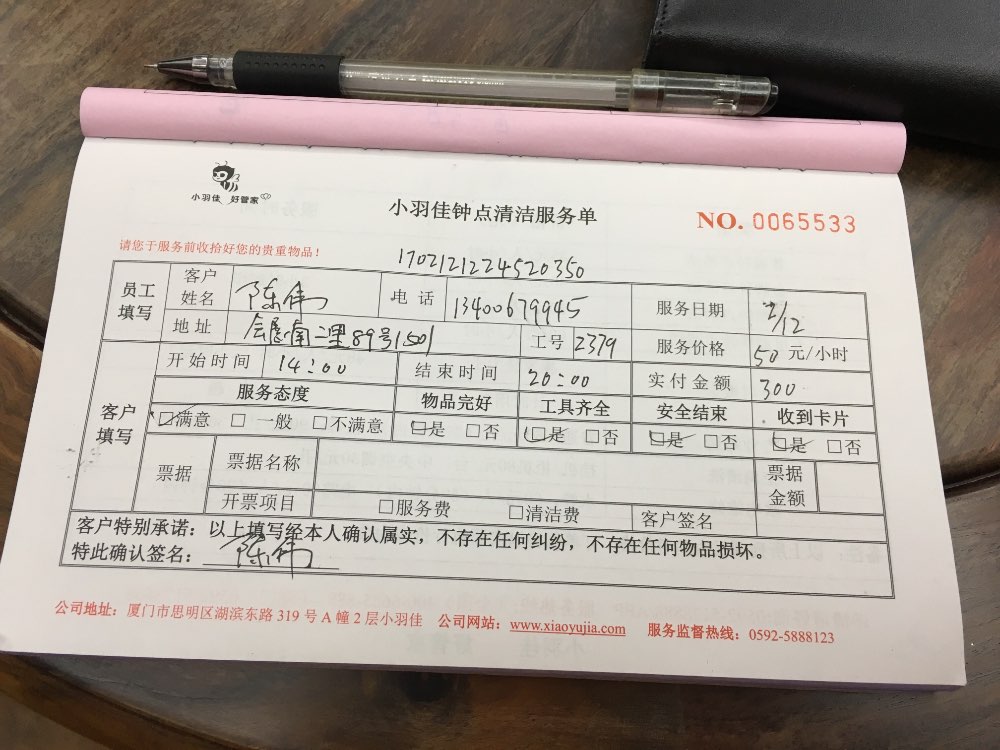 小羽佳 好管家
小羽佳钟点清洁服务单
NO. 0065533
请您于服务前收拾好您的贵重物品！
1702121224520350
员工填写 客户姓名 陈伟 电话 13400679945 服务日期 2/12
地址 会展南二里89号1501 工号 2379 服务价格 50 元/小时
客户填写 开始时间 14:00 结束时间 20:00 实付金额 300
服务态度 物品完好 工具齐全 安全结束 收到卡片
☑满意 □一般 □不满意 ☑是 □否 ☑是 □否 ☑是 □否 ☑是 □否
票据 票据名称 票据金额
开票项目 □服务费 □清洁费 客户签名
客户特别承诺：以上填写经本人确认属实，不存在任何纠纷，不存在任何物品损坏。
特此确认签名：陈伟
公司地址：厦门市思明区湖滨东路 319 号 A 幢 2 层小羽佳 公司网站：www.xiaoyujia.com 服务监督热线：0592-5888123